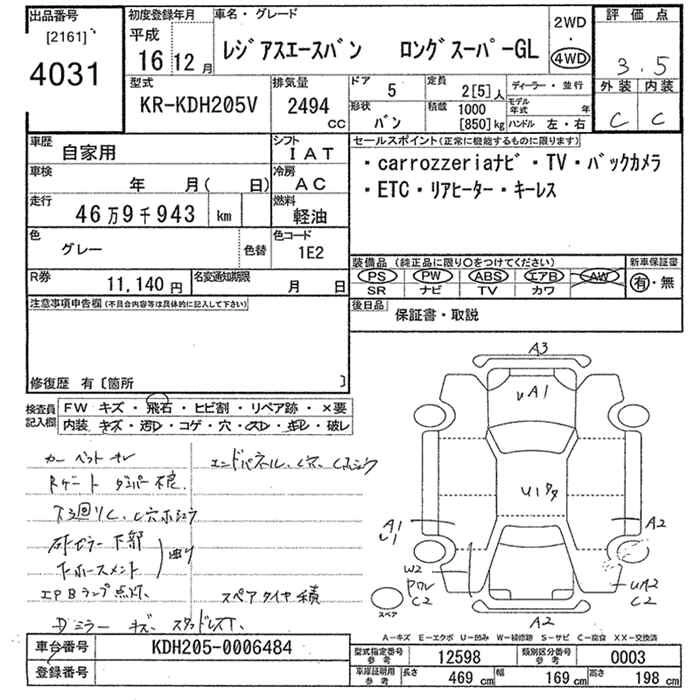 出品番号
[2161]
4031
初度登録年月
平成
16 12 月
車名・グレード
レジアスエースバン ロングスーパーGL
2WD
・
4WD
評価点
3.5
外装 内装
C C
型式
KR-KDH205V
排気量
2494
CC
ドア
5
定員
2[5]人
形状
バン
積載
1000
[850]kg
ディーラー・並行
モデル年式 年
ハンドル 左・右
車歴
自家用
シフト
IAT
車検
年 月( 日)
冷房
AC
走行
46万9千943 km
燃料
軽油
色
グレー
色替
色コード
1E2
R券
11,140円
名変通知期限
月 日
セールスポイント(正常に機能するものに限ります)
・carrozzeriaナビ・TV・バックカメラ
・ETC・リアヒーター・キーレス
装備品(純正品に限り○をつけてください)
PS PW ABS エアB AW
SR ナビ TV カワ
新車保証書
有・無
後日品
保証書・取説
注意事項申告欄(不具合内容等は具体的に記入して下さい)
修復歴 有〔箇所 〕
検査員記入欄
FW キズ・飛石・ヒビ割・リペア跡・×要
内装 キズ・汚レ・コゲ・穴・スレ・キレ・破レ
カーペット
下部
EPBランプ点灯
スペアタイヤ積
Dミラーキズ
A3
UA1
A1
U1
A2
W2
C2
UA2
C2
A2
スペア
A-キズ E-エクボ U-凹み W-補修跡 S-サビ C-腐食 XX-交換済
車台番号
KDH205-0006484
登録番号
型式指定番号
参考
12598
類別区分番号
参考
0003
車庫証明用
参考
長さ
469 cm
幅
169 cm
高さ
198 cm